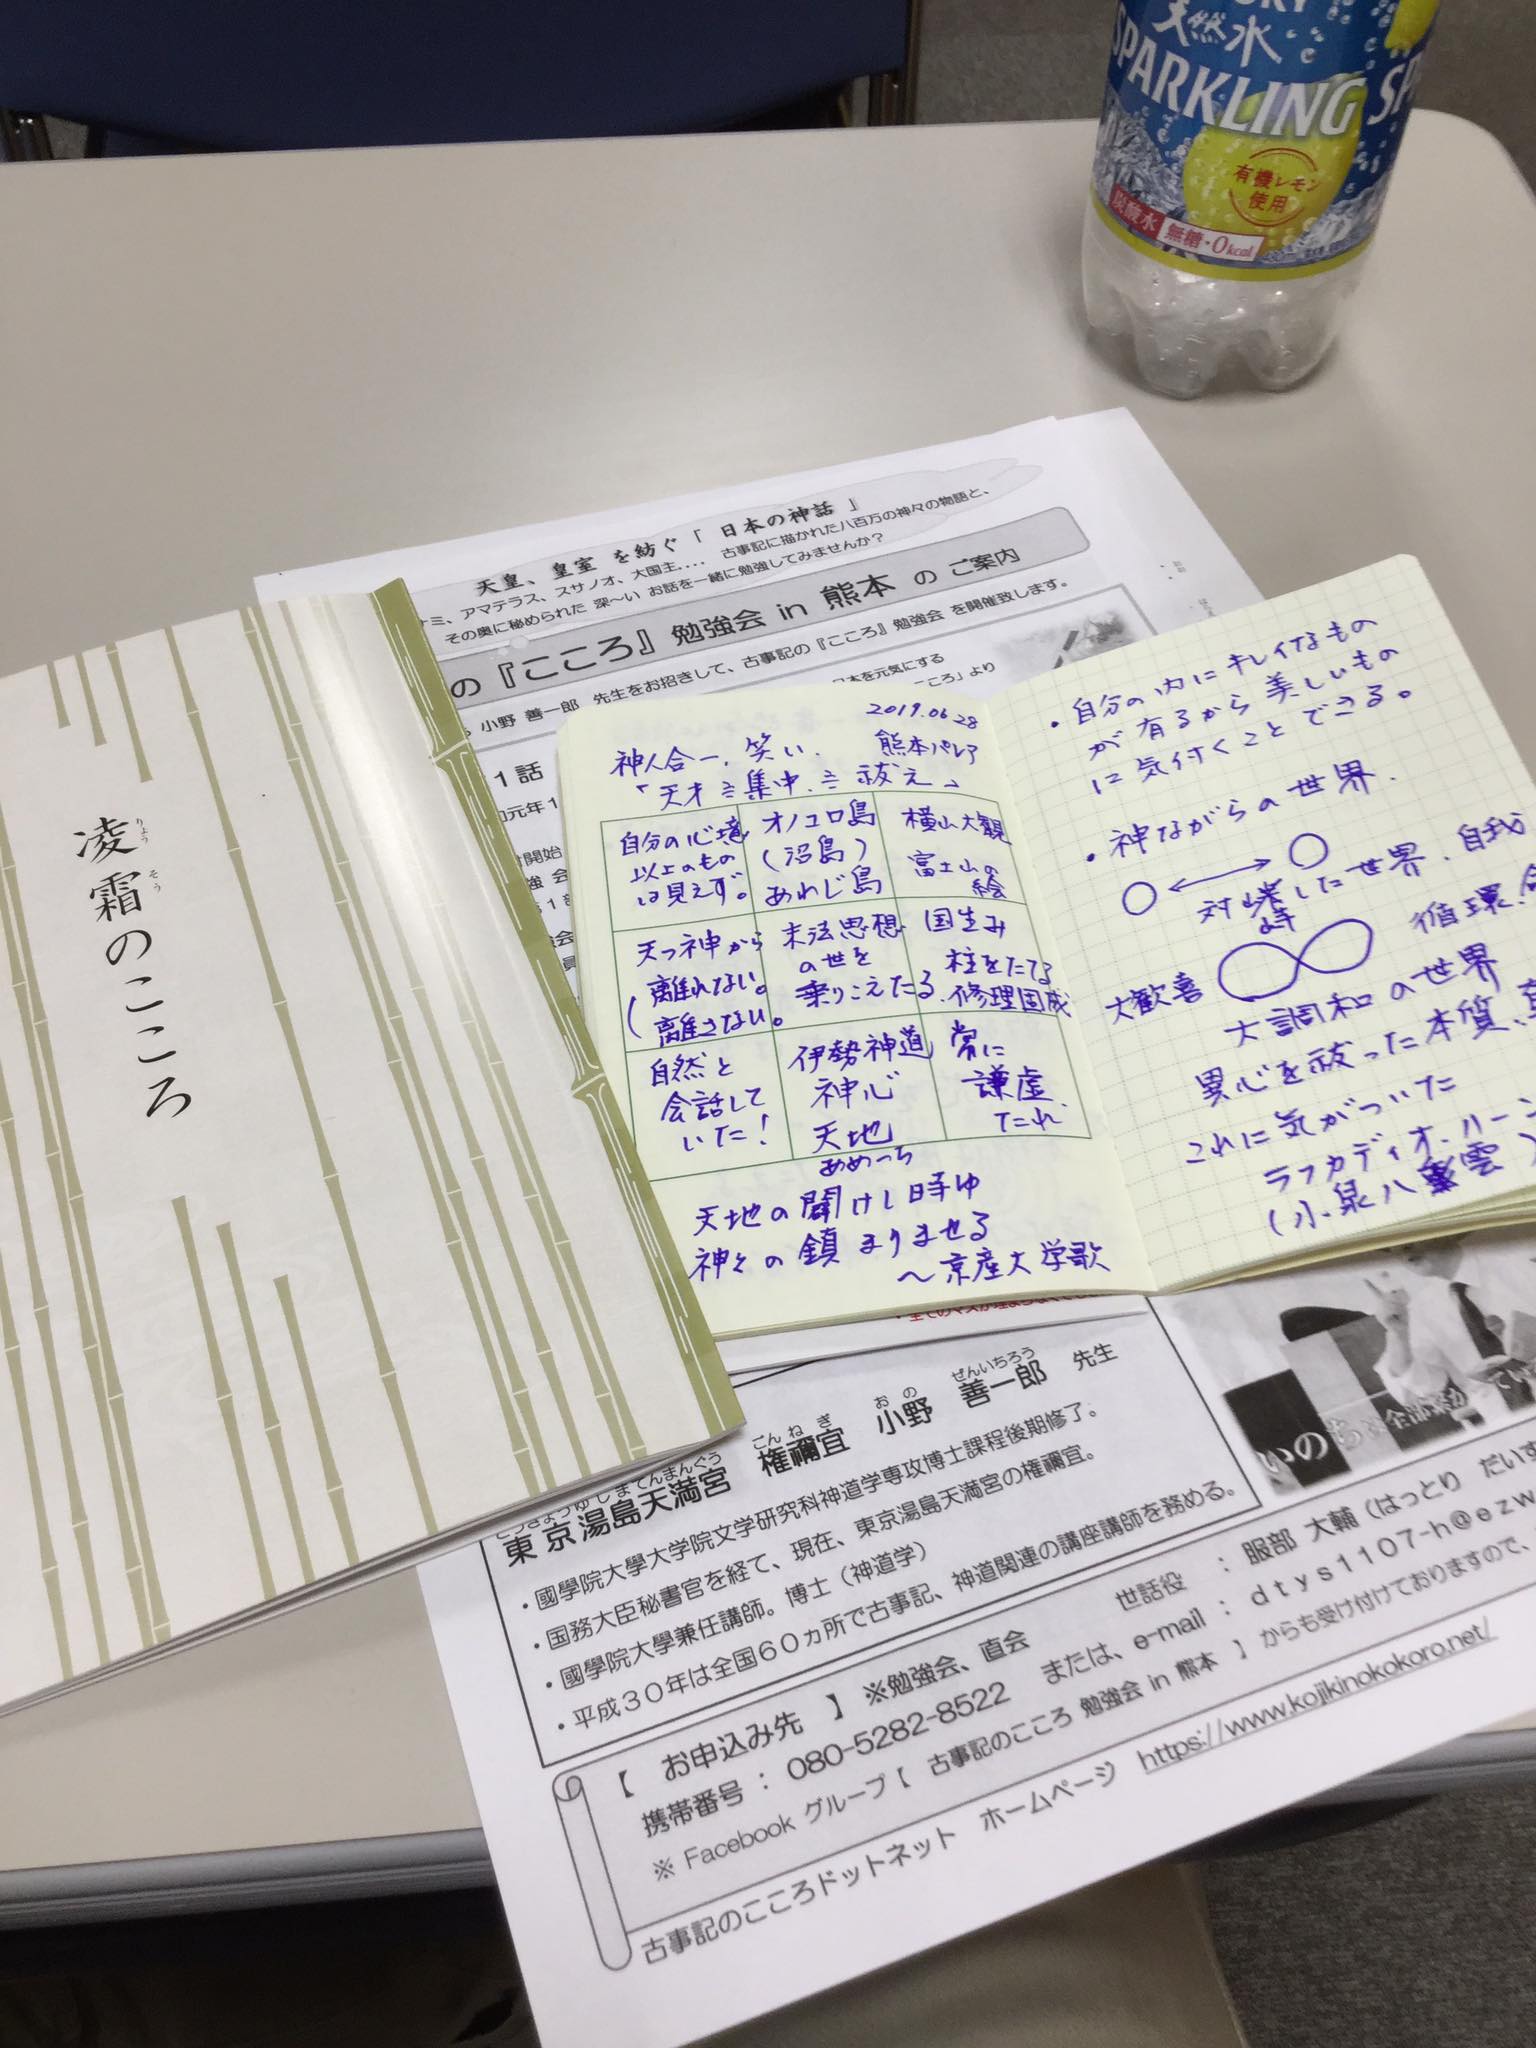 天然水
SPARKLING
有機レモン
使用
炭酸水
無糖・0kcal
天皇、皇室 を紡ぐ「 日本の神話 」
ナミ、アマテラス、スサノオ、大国主.... 古事記に描かれた八百万の神々の物語と、
その奥に秘められた 深〜い お話を一緒に勉強してみませんか？
の『こころ』勉強会 in 熊本 の ご案内
小野 善一郎 先生をお招きして、古事記の『こころ』勉強会 を開催致します。
日本を元気にする
こころ」より
1話
凌霜のこころ
りょう
そう
2019.06.28
神人合一、笑い、 熊本パレア
「天才≒集中≒祓え」
自分の心境
以上のもの
は見えず。
オノコロ島
(沼島)
あわじ島
横山大観
富士山の
絵
天つ神から
離れない。
(離さない。
末法思想
の世を
乗りこえたる
国生み
柱をたてる
修理固成
自然と
会話して
いた!
伊勢神道
神心
天地
あめつち
常に
謙虚
たれ
天地の開けし時ゆ
神々の鎮まりませる
〜京産大学歌
・自分の内にキレイなもの
が有るから美しいもの
に気付くことできる。
・神ながらの世界
対峙した世界、自我
循環、
大歓喜
大調和の世界
異心を祓った本質、
これに気がついた
ラフカディオ・ハーン
(小泉八雲)
とうきょうゆしまてんまんぐう ごんねぎ おの ぜんいちろう
東京湯島天満宮 権禰宜 小野 善一郎 先生
・國學院大學大学院文学研究科神道学専攻博士課程後期修了。
・国務大臣秘書官を経て、現在、東京湯島天満宮の権禰宜。
・國學院大學兼任講師。博士（神道学）
・平成３０年は全国６０ヵ所で古事記、神道関連の講座講師を務める。
【 お申込み先 】 ※勉強会、直会 世話役 ： 服部 大輔（はっとり だいす
携帯番号 ： 080-5282-8522 または、e-mail : dtys1107-h@ezw
※ Facebook グループ【 古事記のこころ 勉強会 in 熊本 】 からも受け付けておりますので、
古事記のこころドットネット ホームページ https://www.kojikinokokoro.net/